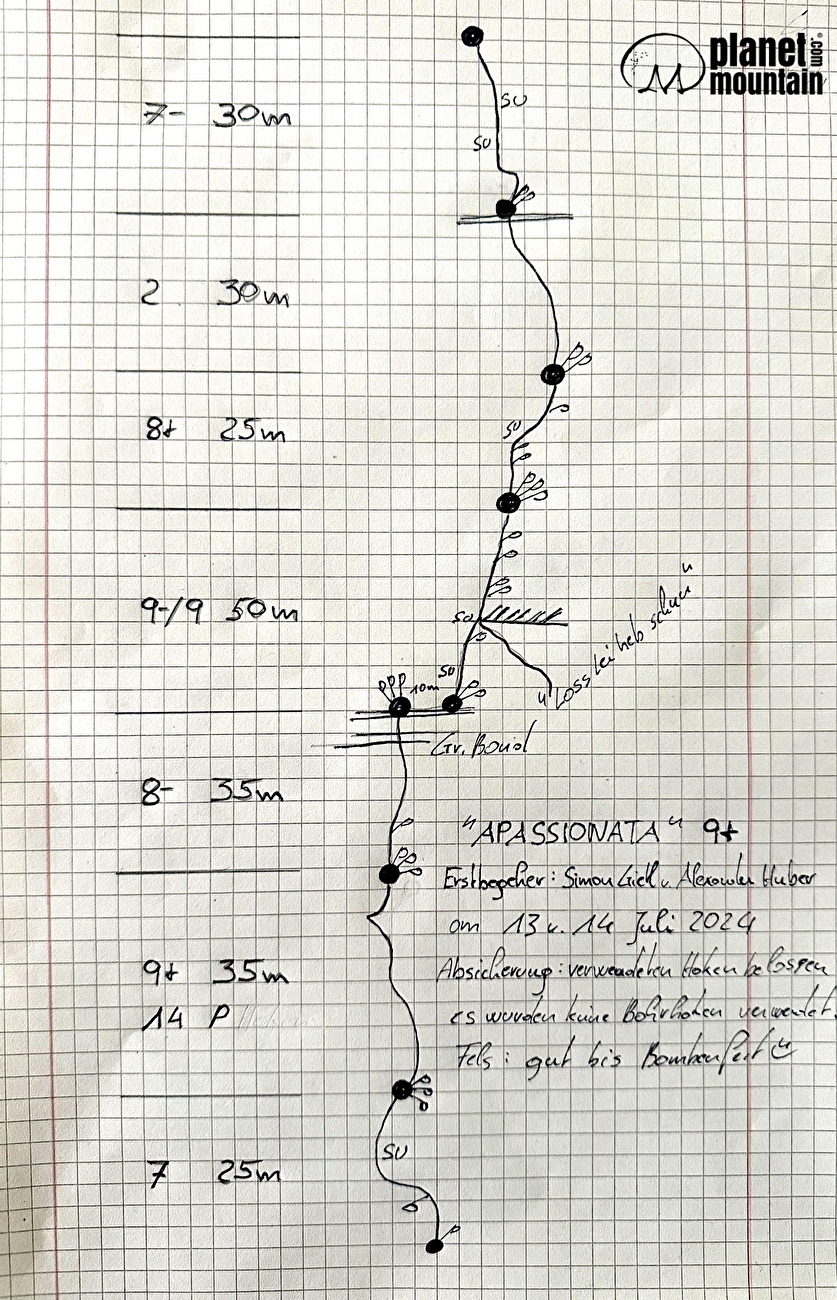 planet
mountain
.com
7- 30m
SU
SU
2 30m
8+ 25m
SU
9-/9 50m
SU
SU
10m
Gr. Band
8- 35m
"APASSIONATA" 9+
Erstbegeher: Simon Gietl u. Alexander Huber
am 13 u. 14 Juli 2024
9+ 35m
Absicherung: verwendeten Haken belassen
14 P
es wurden keine Bohrhaken verwendet.
Fels: gut bis Bombenfest
SU
7 25m